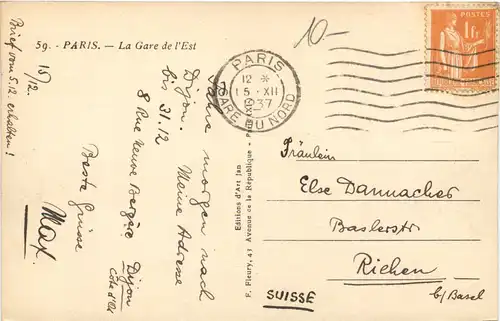 59. - PARIS. — La Gare de l'Est
10-
PARIS
12 *
15 - XII
1937
GARE DU NORD
POSTES
1 Fr
15/12.
Brief vom 5.12. erhalten!
Fahre morgen nach
Dijon. Meine Adresse
bis 31.12
8 Rue Neuve Bergère
Dijon
Côte d'Or
Beste Grüsse
Max.
Editions d'Art Jan
F. Fleury, 41 Avenue de la République - 
Fräulein
Else Dannacher
Baslerstr
Riehen
b/Basel
SUISSE